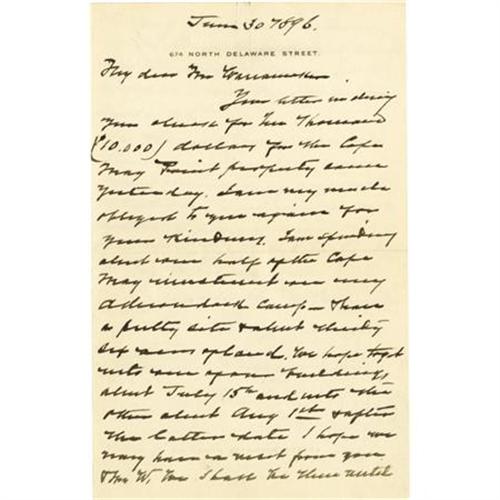 June 30 1896.
674 NORTH DELAWARE STREET.
My dear Mr Wanamaker
Your letter enclosing
your check for Ten Thousand
(10.000) dollars for the Cape
May Point property came
yesterday. I am very much
obliged to you again for
your kindness. I am spending
about one half of the Cape
May investment on my
Adirondack camp - I have
a pretty site & about thirty
six acres of land. We hope to get
into one of our buildings
about July 15th and into the
other about Aug 1st & after
the latter date I hope we
may have a visit from you
& Mrs W. We shall be there until